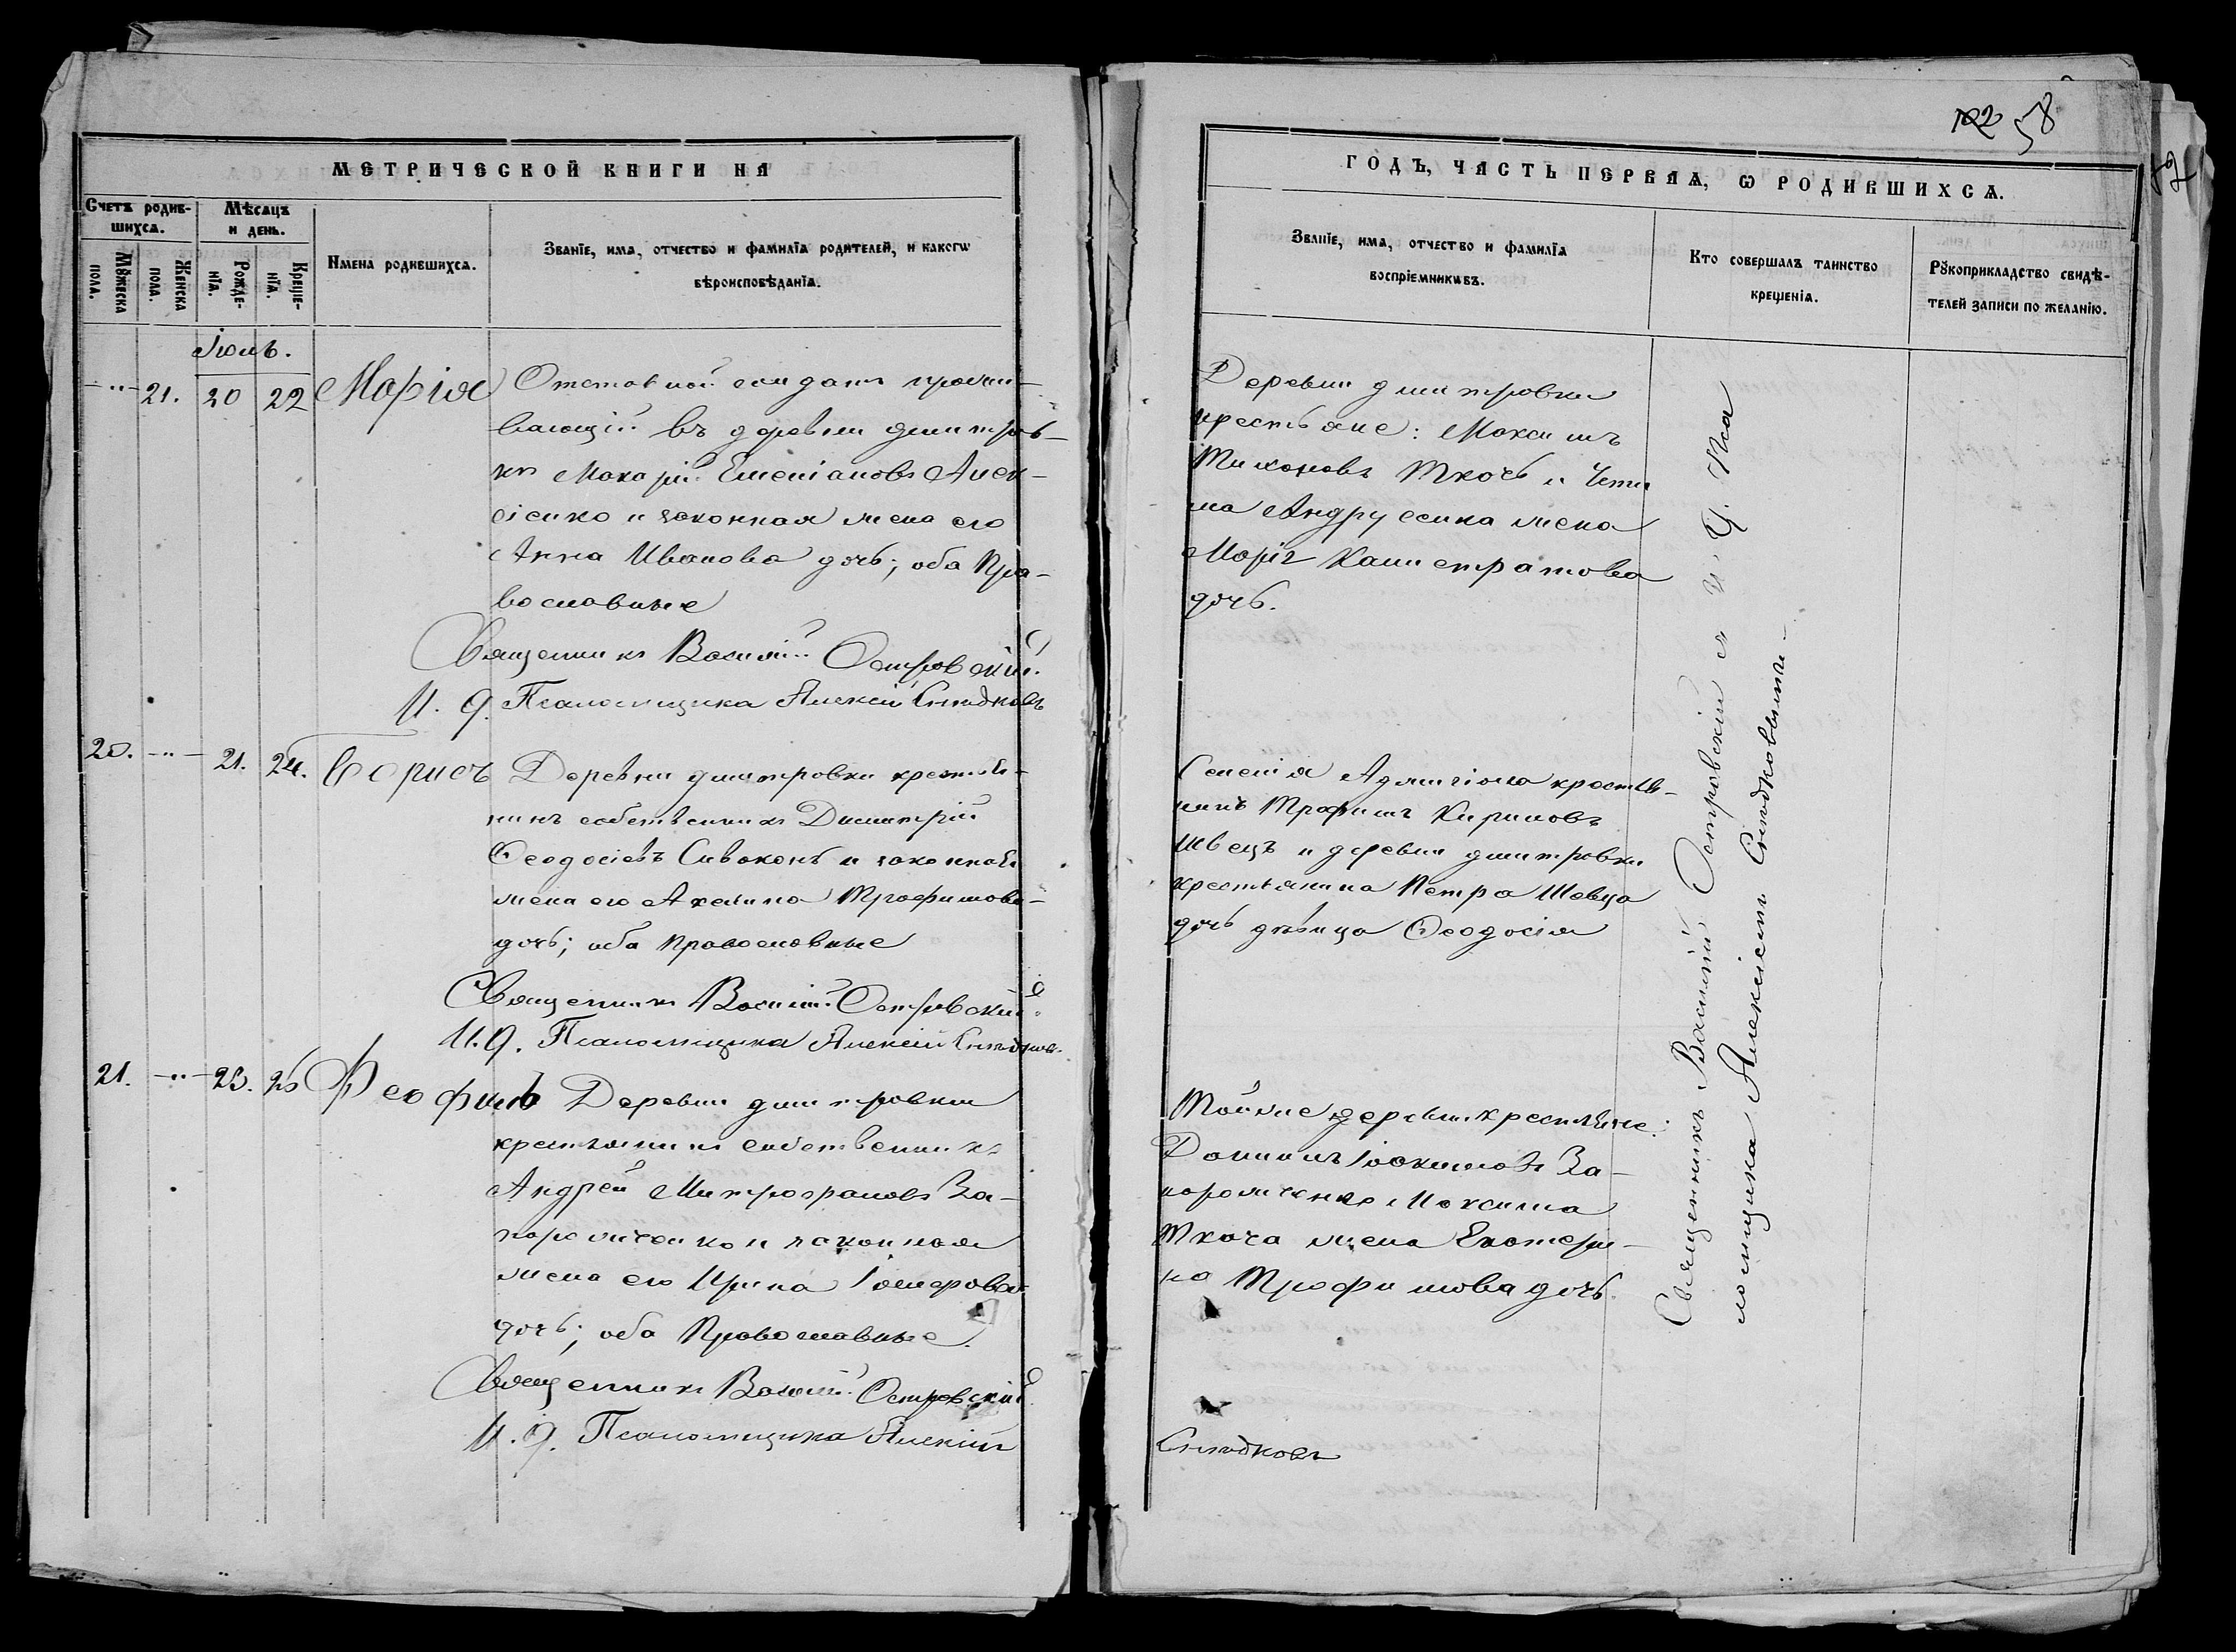 102 58
МЕТРИЧЕСКОЙ КНИГИ НА
Счетъ родив-
шихся.
Мѣсяцъ
и день.
Мꙋжеска
пола.
Женска
пола.
Рожде-
нїя.
Креще-
нїя.
Имена родившихся.
Званїе, имя, отчество и фамилїя родителей, и какогѡ
вѣроисповѣданїя.
Іюль.
-"- 21. 20 22 Марія Отставной солдатъ прожи-
вающій въ деревни дмитров-
кѣ Макарій Емеліановъ Алек-
сіенко и законная жена его
Анна Иванова дочь; оба Пра-
вославные
Священникъ Василій Островскій.
И. д. Псаломщика Алексій Снядковъ
20. -"- 21. 24. Борисъ Деревни дмитровки крестья-
нинъ собственникъ Димитрій
Ѳеодосіевъ Сивоконь и законная
жена его Акелина Трофимова
дочь; оба православные
Священникъ Василій Островскій.
И. д. Псаломщика Алексій Снядковъ
21. -"- 23. 25 Ѳеофилъ Деревни дмитровки
крестьянинъ собственникъ
Андрей Митрофановъ За-
пороженко и законная
жена его Ирина
дочь; оба Православные.
Священникъ Василій Островскій.
И. д. Псаломщика Алексій
ГОДЪ, ЧАСТЬ ПЕРВАЯ, Ѡ РОДИВШИХСЯ.
Званїе, имя, отчество и фамилїя
воспрїемниківъ.
Кто совершалъ таинство
крещенїя.
Рꙋкоприкладство свидѣ-
телей записи по желанїю.
Деревни дмитровки
крестьяне: Максимъ
Тихоновъ Ткачь и
Андрусенка жена
Марія Калистратова
дочь.
Селенія крестья-
нинъ Трофимъ Кириловъ
Швецъ и деревни дмитровки
крестьянина Петра Шевца
дочь дѣвица Ѳеодосія
Той же деревни крестьяне:
Іоакимовъ За-
пороженко Максима
Ткача жена Екатери-
на Трофимова дочь.
Снядковъ
Священникъ Василій Островскій съ и. д. Пса
ломщика Алексіемъ Снядковымъ.